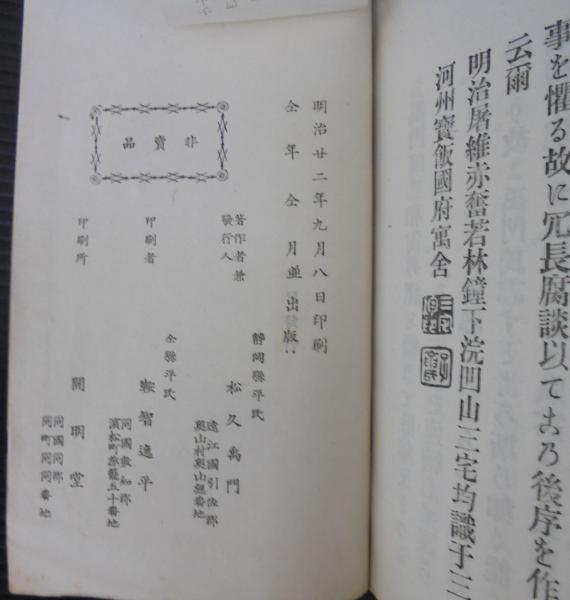 事を懼る故に冗長腐談以てよろ後序を作
云爾
明治屠維赤奮若林鐘下浣凹山三宅均識于三
河州寶飯國府寓舍
明治廿二年九月八日印刷
仝年仝月並出版
非賣品
著作者兼
發行人
靜岡縣平民
松久禹門
遠江國引佐郡
奥山村奥山
番地
印刷者
仝縣平民
鞍智逸平
同國敷知郡
濱松町
五十番地
印刷所
開明堂
同國同郡
同町同番地